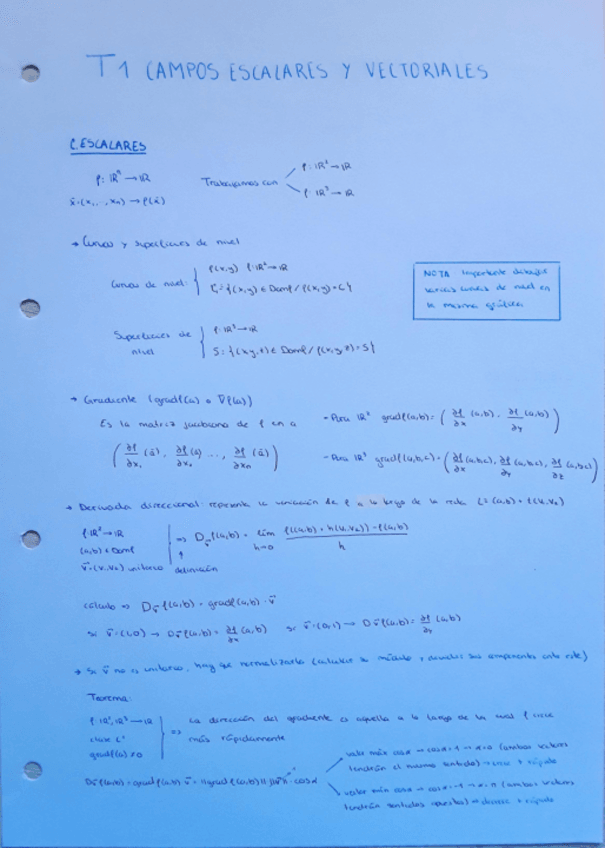 T1 CAMPOS ESCALARES Y VECTORIALES
C. ESCALARES
f: ℝⁿ → ℝ
x̄=(x₁,..,xₙ) → f(x̄)
Trabajamos con
f: ℝ² → ℝ
f: ℝ³ → ℝ
→ Curvas y superficies de nivel
Curvas de nivel:
f(x,y) f: ℝ² → ℝ
C = {(x,y) ∈ Domf / f(x,y) = C}
NOTA Importante dibujar
varias curvas de nivel en
la misma gráfica
Superficies de
nivel
f: ℝ³ → ℝ
S = {(x,y,z) ∈ Domf / f(x,y,z) = S}
→ Gradiente (gradf(ā) o ∇f(ā))
Es la matriz jacobiana de f en a
(∂f/∂x₁ (ā), ∂f/∂x₂ (ā) ..., ∂f/∂xₙ (ā))
- Para ℝ² gradf(a,b) = (∂f/∂x (a,b), ∂f/∂y (a,b))
- Para ℝ³ gradf(a,b,c) = (∂f/∂x (a,b,c), ∂f/∂y (a,b,c), ∂f/∂z (a,b,c))
→ Derivada direccional: representa la variación de f a lo largo de la recta (a,b) + t(v₁,v₂)
f: ℝ² → ℝ
(a,b) ∈ Domf
v̄=(v₁,v₂) unitario
⇒ Dv̄ f(a,b) = lím h→0 (f((a,b) + h(v₁,v₂)) - f(a,b)) / h
definición
cálculo ⇒ Dv̄ f(a,b) = gradf(a,b) · v̄
si v̄=(1,0) → Dv̄ f(a,b) = ∂f/∂x (a,b) si v̄=(0,1) → Dv̄ f(a,b) = ∂f/∂y (a,b)
→ Si v̄ no es unitario, hay que normalizarlo (calcular su módulo y dividir sus componentes entre este)
Teorema:
f: ℝ², ℝ³ → ℝ
clase C¹
gradf(a) ≠ 0
⇒ La dirección del gradiente es aquella a lo largo de la cual f crece
más rápidamente
Dv̄ f(a,b) = gradf(a,b) · v̄ = ||gradf(a,b)|| ||v̄|| · cosα
valor máx cosα → cosα = 1 → α = 0 (ambos vectores
tendrán el mismo sentido) → crece + rápido
valor mín cosα → cosα = -1 → α = π (ambos vectores
tendrán sentidos opuestos) → decrece + rápido